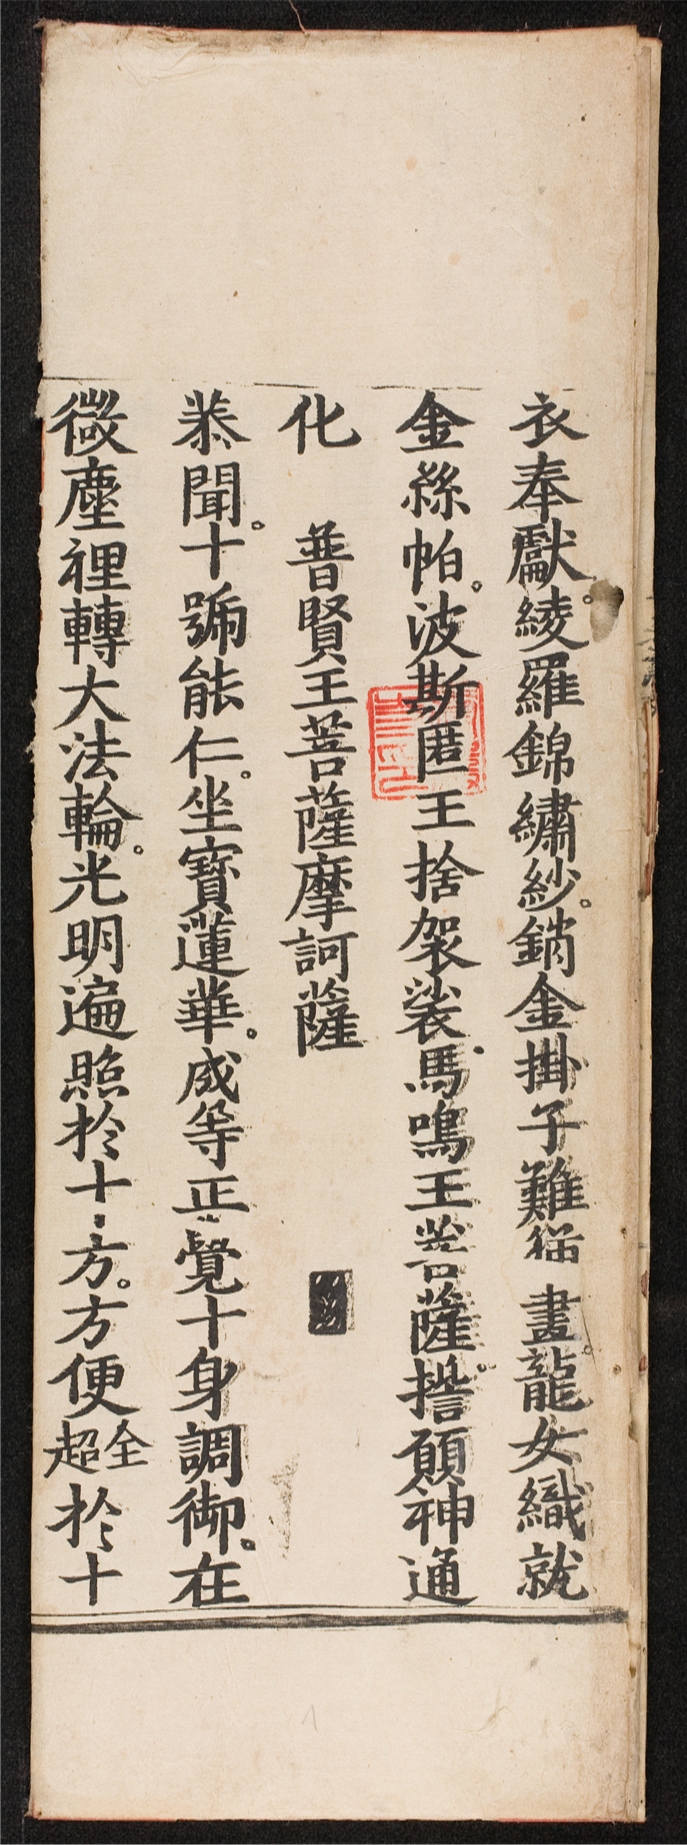 衣奉獻。綾羅錦繡紗。銷金掛子難描畫。龍女織就
金絲帕。波斯匿王捨袈裟馬鳴王菩薩。誓願神通
化　普賢王菩薩摩訶薩
恭聞。十號能仁。坐寶蓮華。成等正覺十身調御。在
微塵裡轉大法輪。光明遍照於十方。方便全超於十